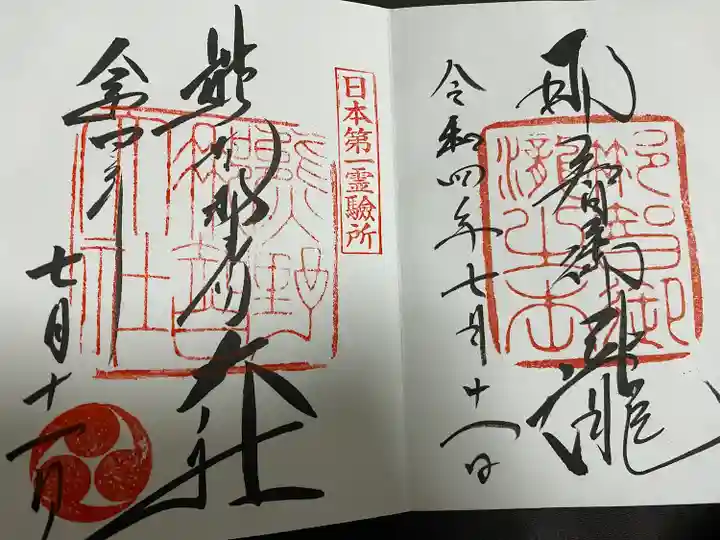 那智御瀧
令和四年七月十一日
那智御
日本第一霊驗所
熊野那智大社
熊野
那智
大社
令和四年
七月十一日